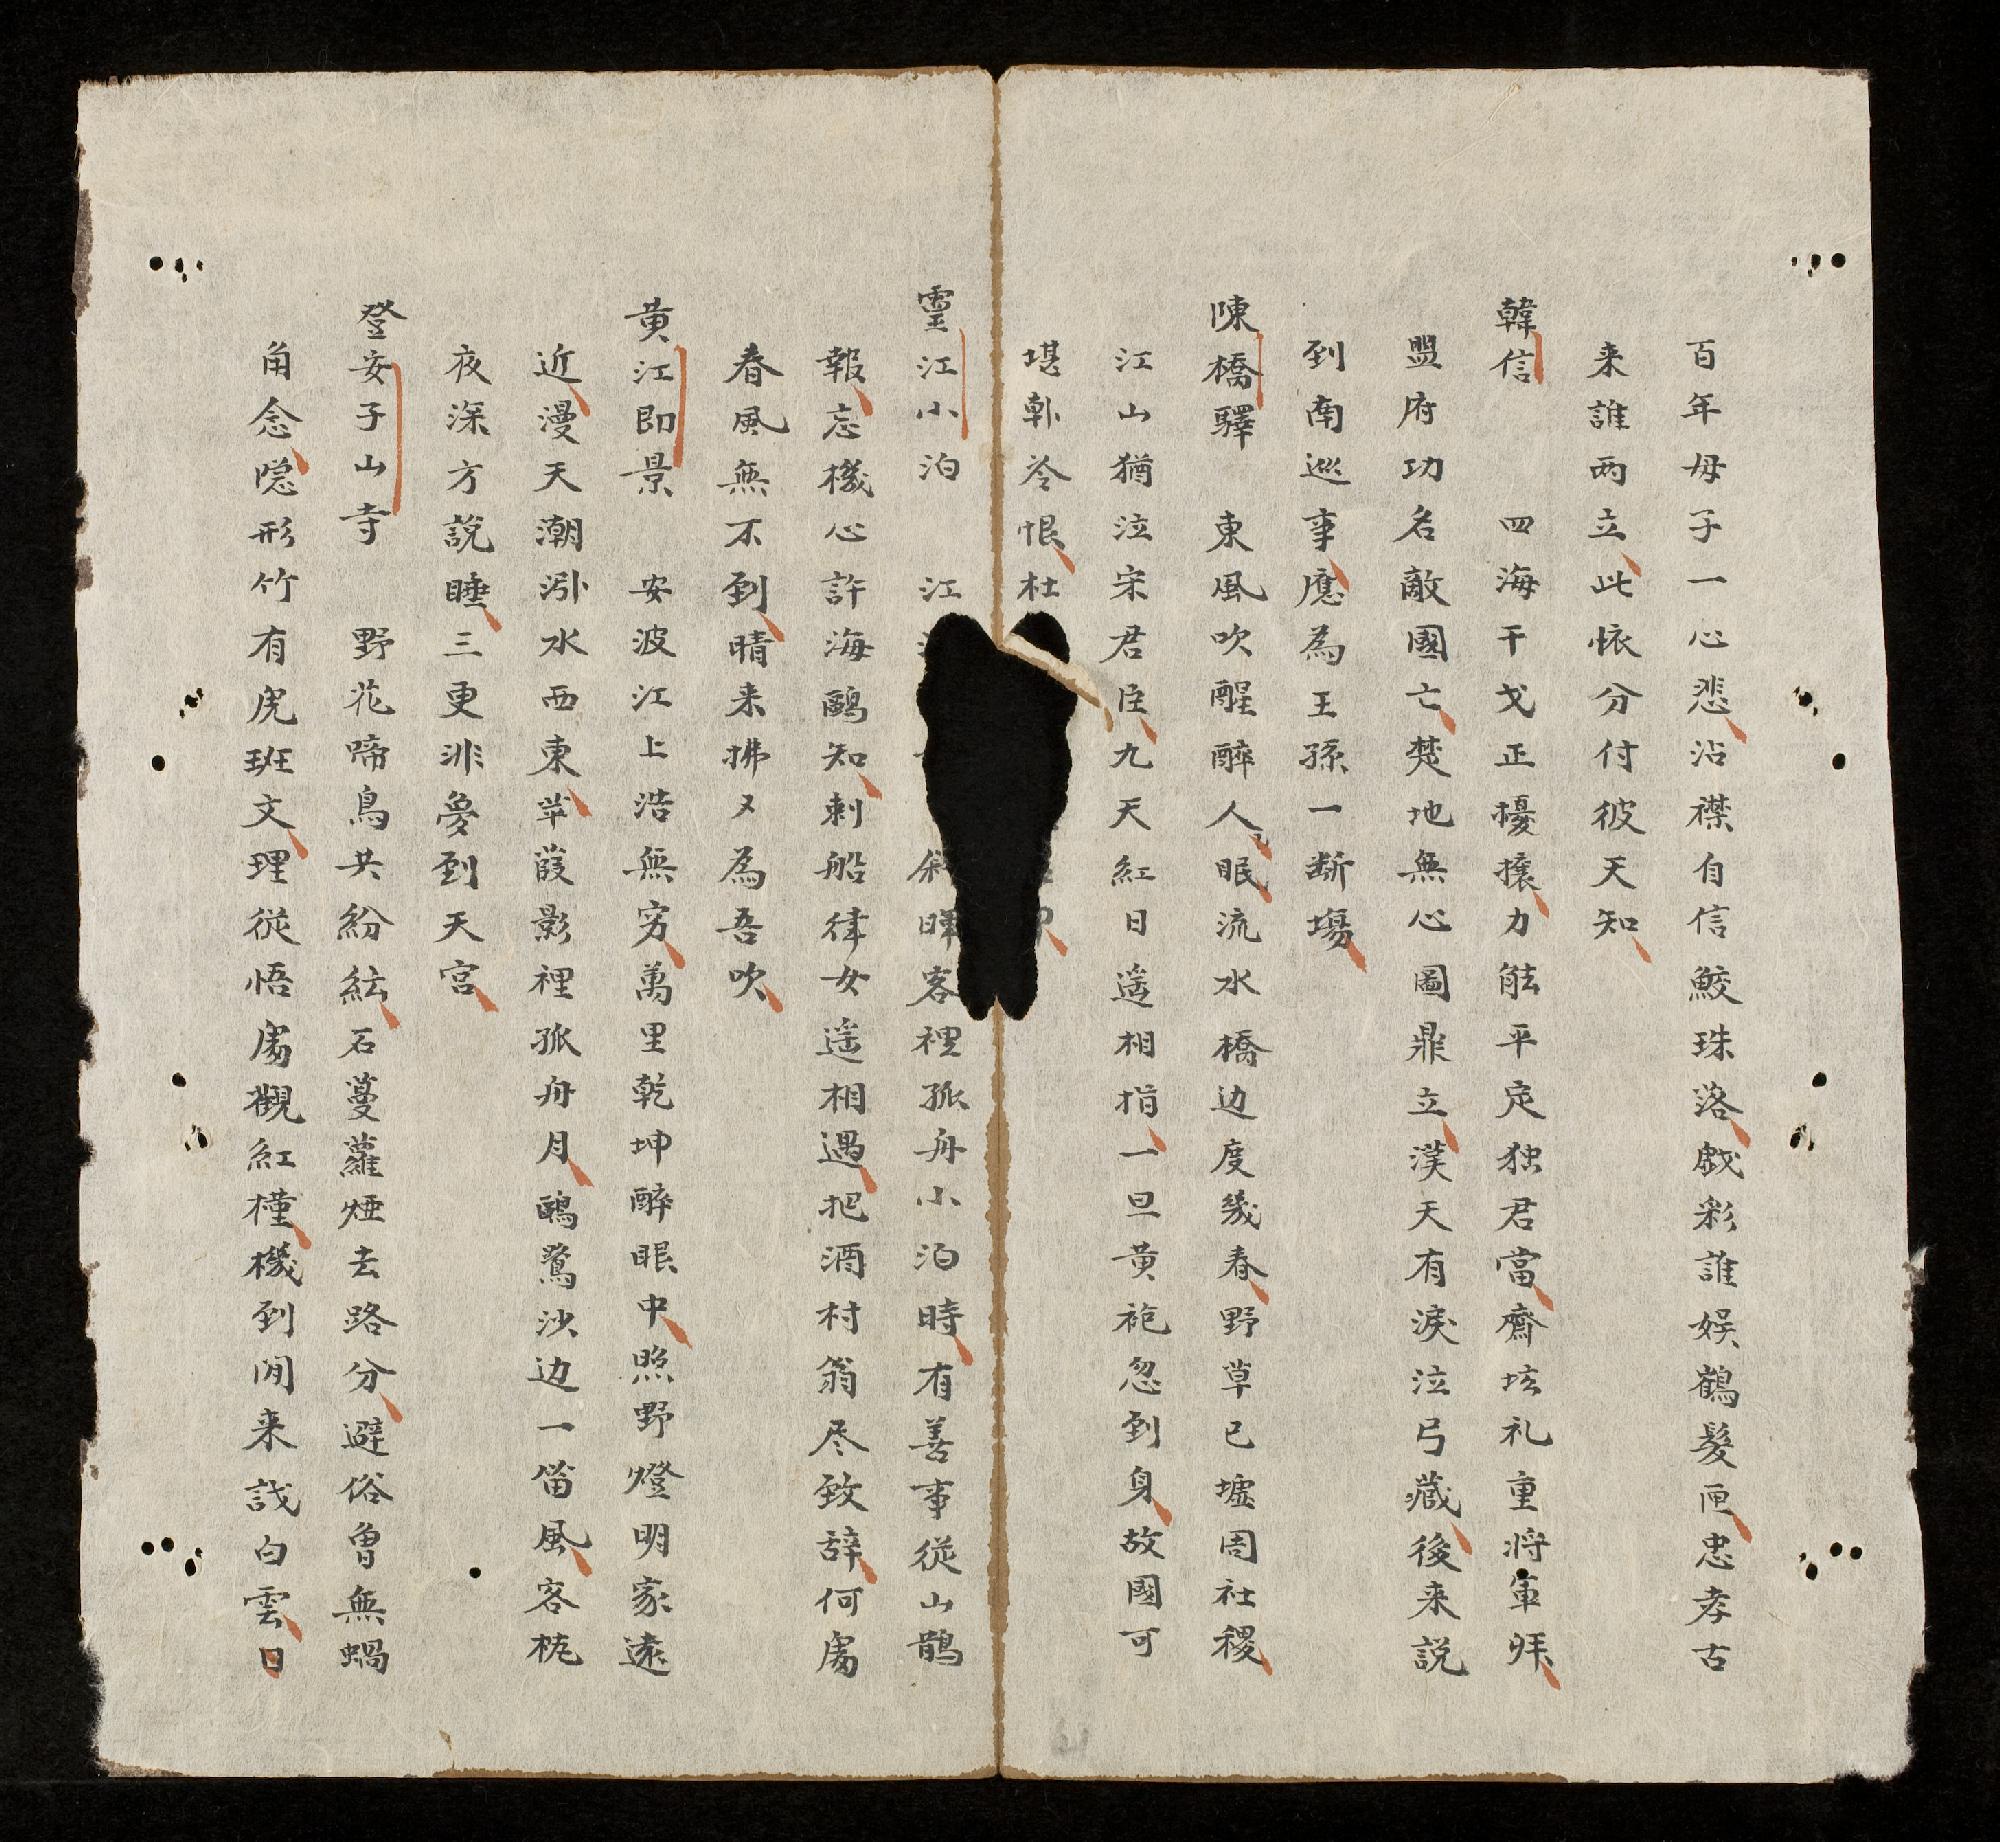 百年毋子一心悲沾襟自信鮫珠落戯彩誰娱鶴髮垂忠孝古
来誰两立此懐分付彼天知
韓信 四海干戈正擾攘力能平定独君當齋坛礼重将軍拜
盟府功名敵國亡楚地無心圖鼎立漢天有淚泣弓藏後来説
到南巡事應為王孫一断塲
陳橋驛 東風吹醒醉人眠流水橋边度幾春野草已墟周社稷
江山猶泣宋君臣九天紅日遥相指一旦黄袍忽到身故國可
堪乹苓恨杜
霊江小泊 江 斜暉客裡孤舟小泊時有善事從山鵲
報忘機心許海鷗知刺船律女遥相遇把酒村翁尽致辞何處
春風無不到晴来拂又為吾吹
黄江即景 安波江上浩無穷萬里乾坤醉眼中照野燈明家遠
近漫天潮汐水西東苹葭影裡孤舟月鷗鷺沙边一笛風客枕
夜深方說睡三更非夢到天宫
登安子山寺 野花啼鳥共紛紜石蔓蘿煙去路分避俗曾無蝸
角念隠形竹有虎班文理從悟處觀紅槿機到閒来説白雲日